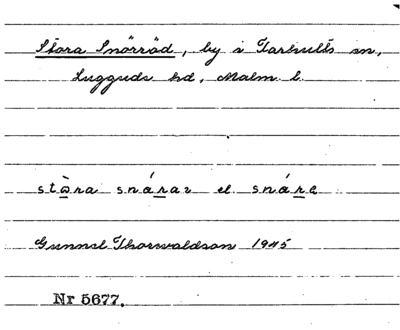 Stora Snörröd, by i Farhults sn,
Luggude hd, Malm. l.
stὼra snárar el. snáre
Gunnel Thorwaldson 1945
Nr 5677.